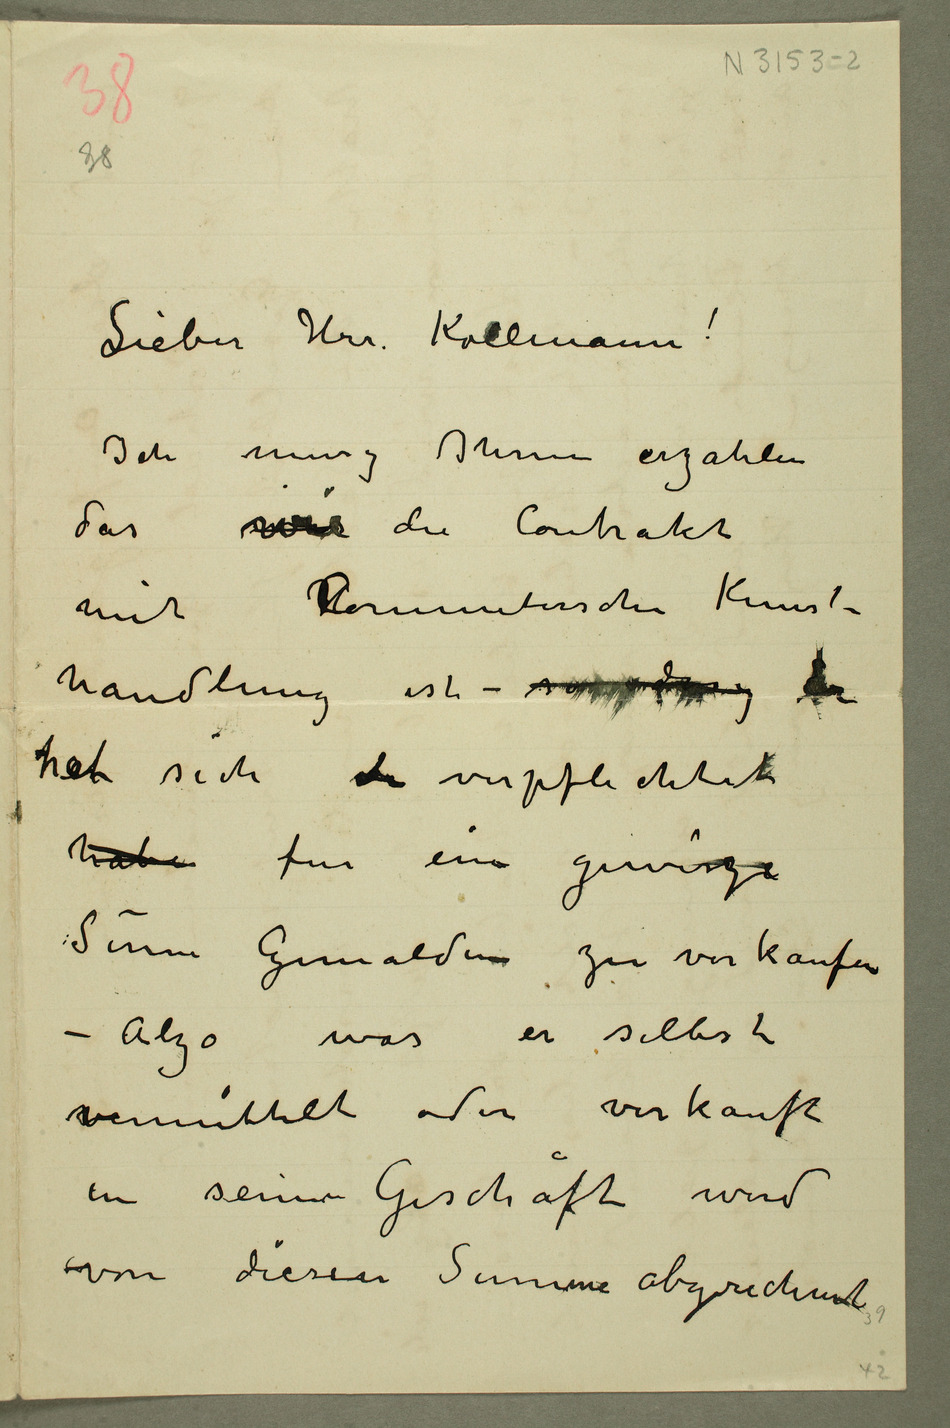 38
N 3153-2
38
Lieber Herr. Kollmann!
Ich muss Ihnen erzahlen
das wie die Contrakt
mit Commeterschen Kunst-
handlung ist – er
hat sich verpflichtet
habe fur eine gewisze
Sume Gemalden zu verkaufen
– Alzo was er selbst
vermittelt oder verkauft
in seinen Geschäft wird
von diesen Summe abgerechnet
39
42